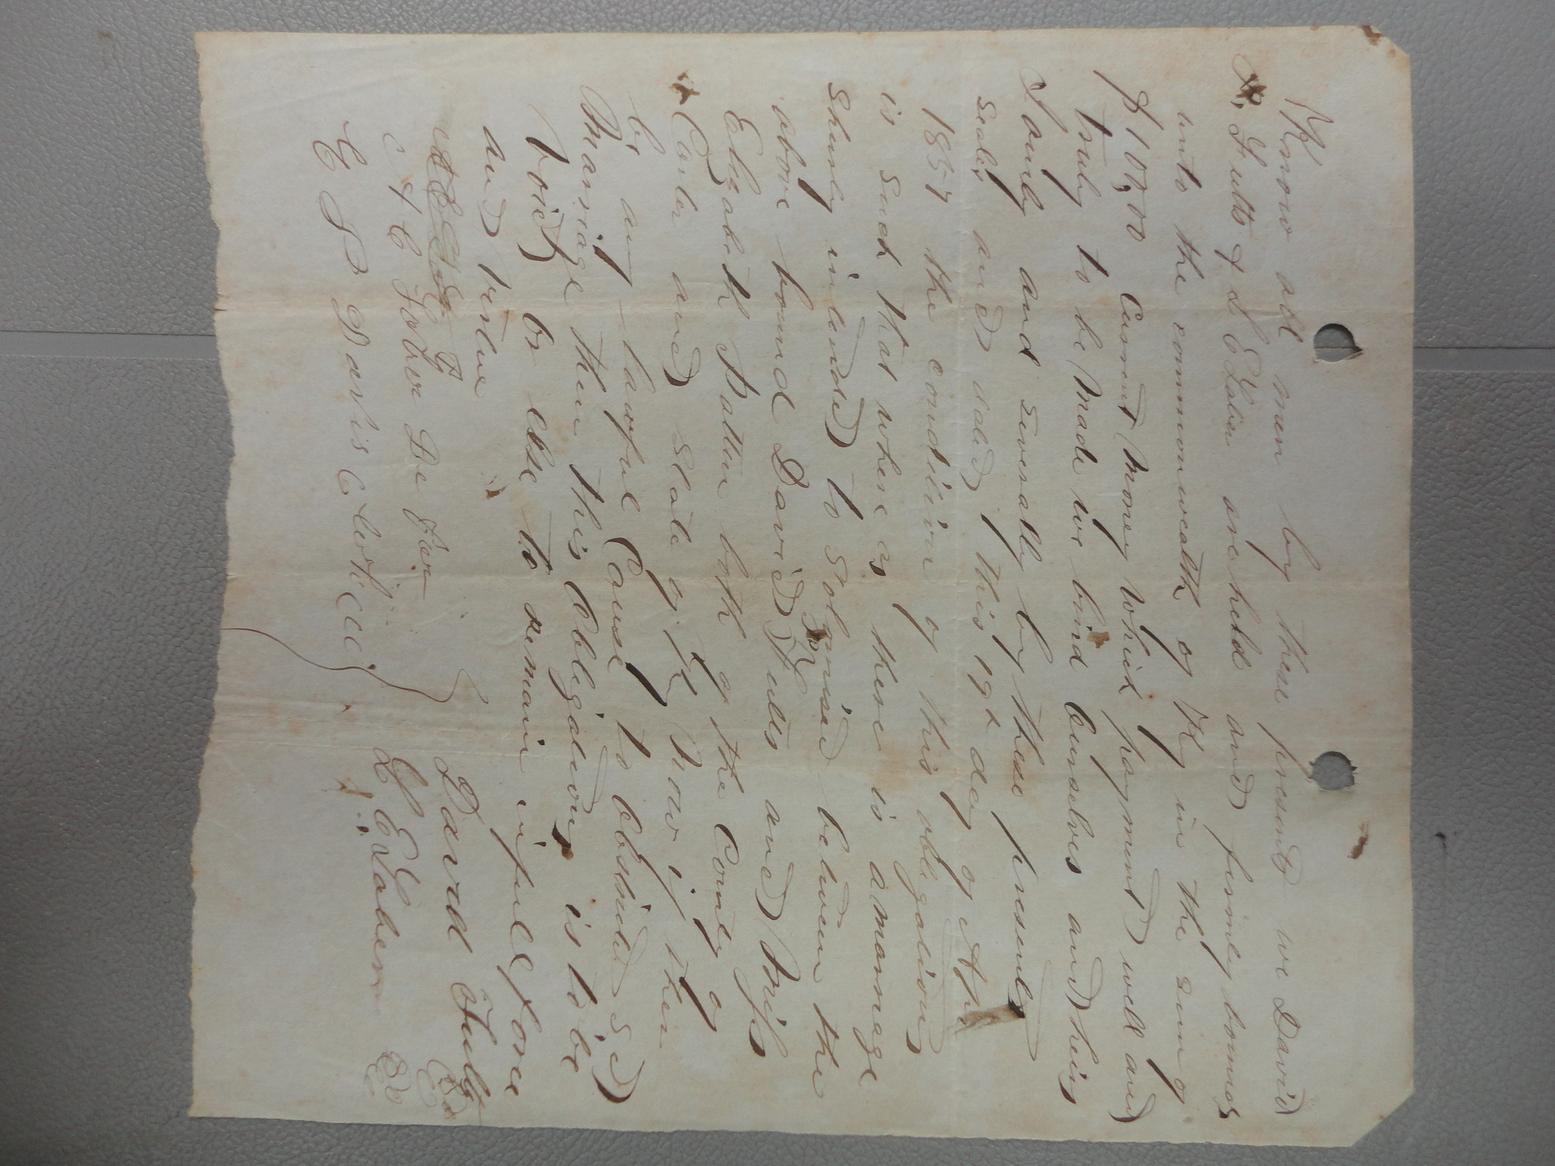 Know all men by these presents we David
K, Fults & L E Laben are held and firmly bounnd
unto the commonwealth of Ky in the sum of
$100,00 Current Money Which payment well and
truly to be Made we bind Ourselves and heirs
Jointly and severally by these presents
seald and dated this 19th day of Apr
1857 the condition of this obligation
is such that where as there is a marriage
shortly intended to Solomnised between the
above bound David K Fults and Miss
Elizabeth Patten both of the County of
Carter and state of Ky Now if ther
be any lawful Cause to obstruct sd
Marriage then this obligation is to be
void or else to remain in full force
and virtue
David Fults
C & C Be for
L E Laben
E S Davis Clerk